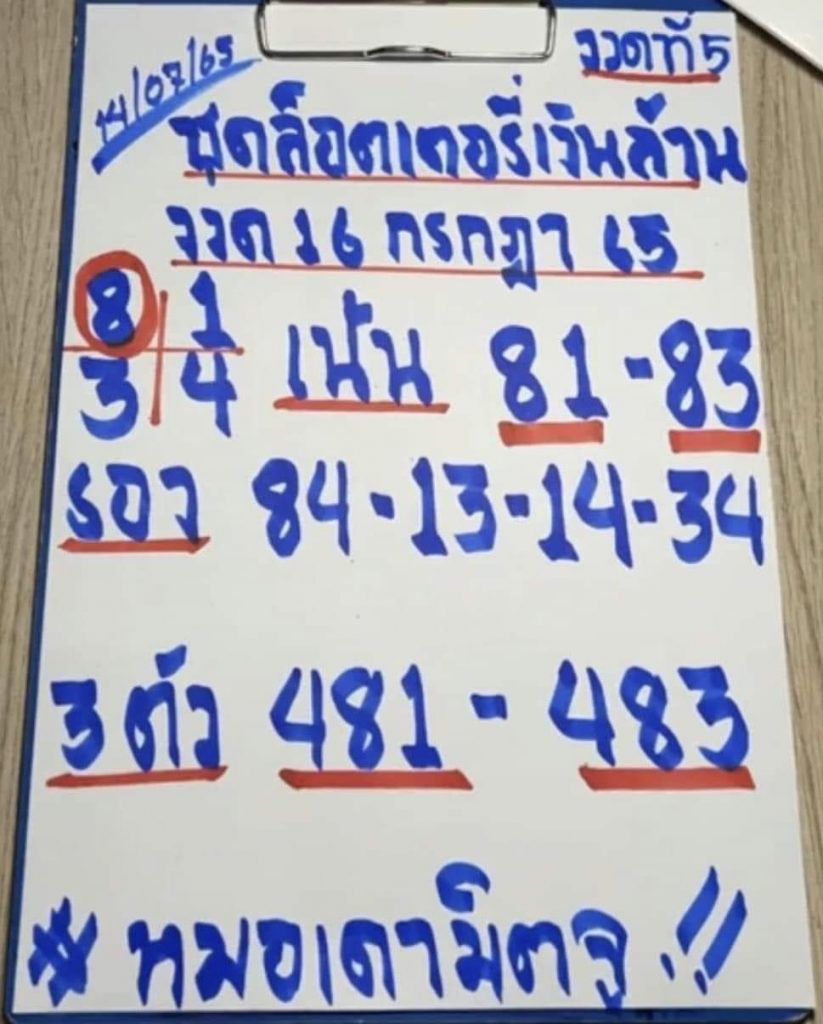 14/07/65
งวดที่ 5
ชุดล็อตเตอรี่เงินล้าน
งวด 16 กรกฎา 65
8 1
3 4
เน้น 81-83
รอง 84-13-14-34
3 ตัว 481 - 483
#หมอเดามิตจู !!